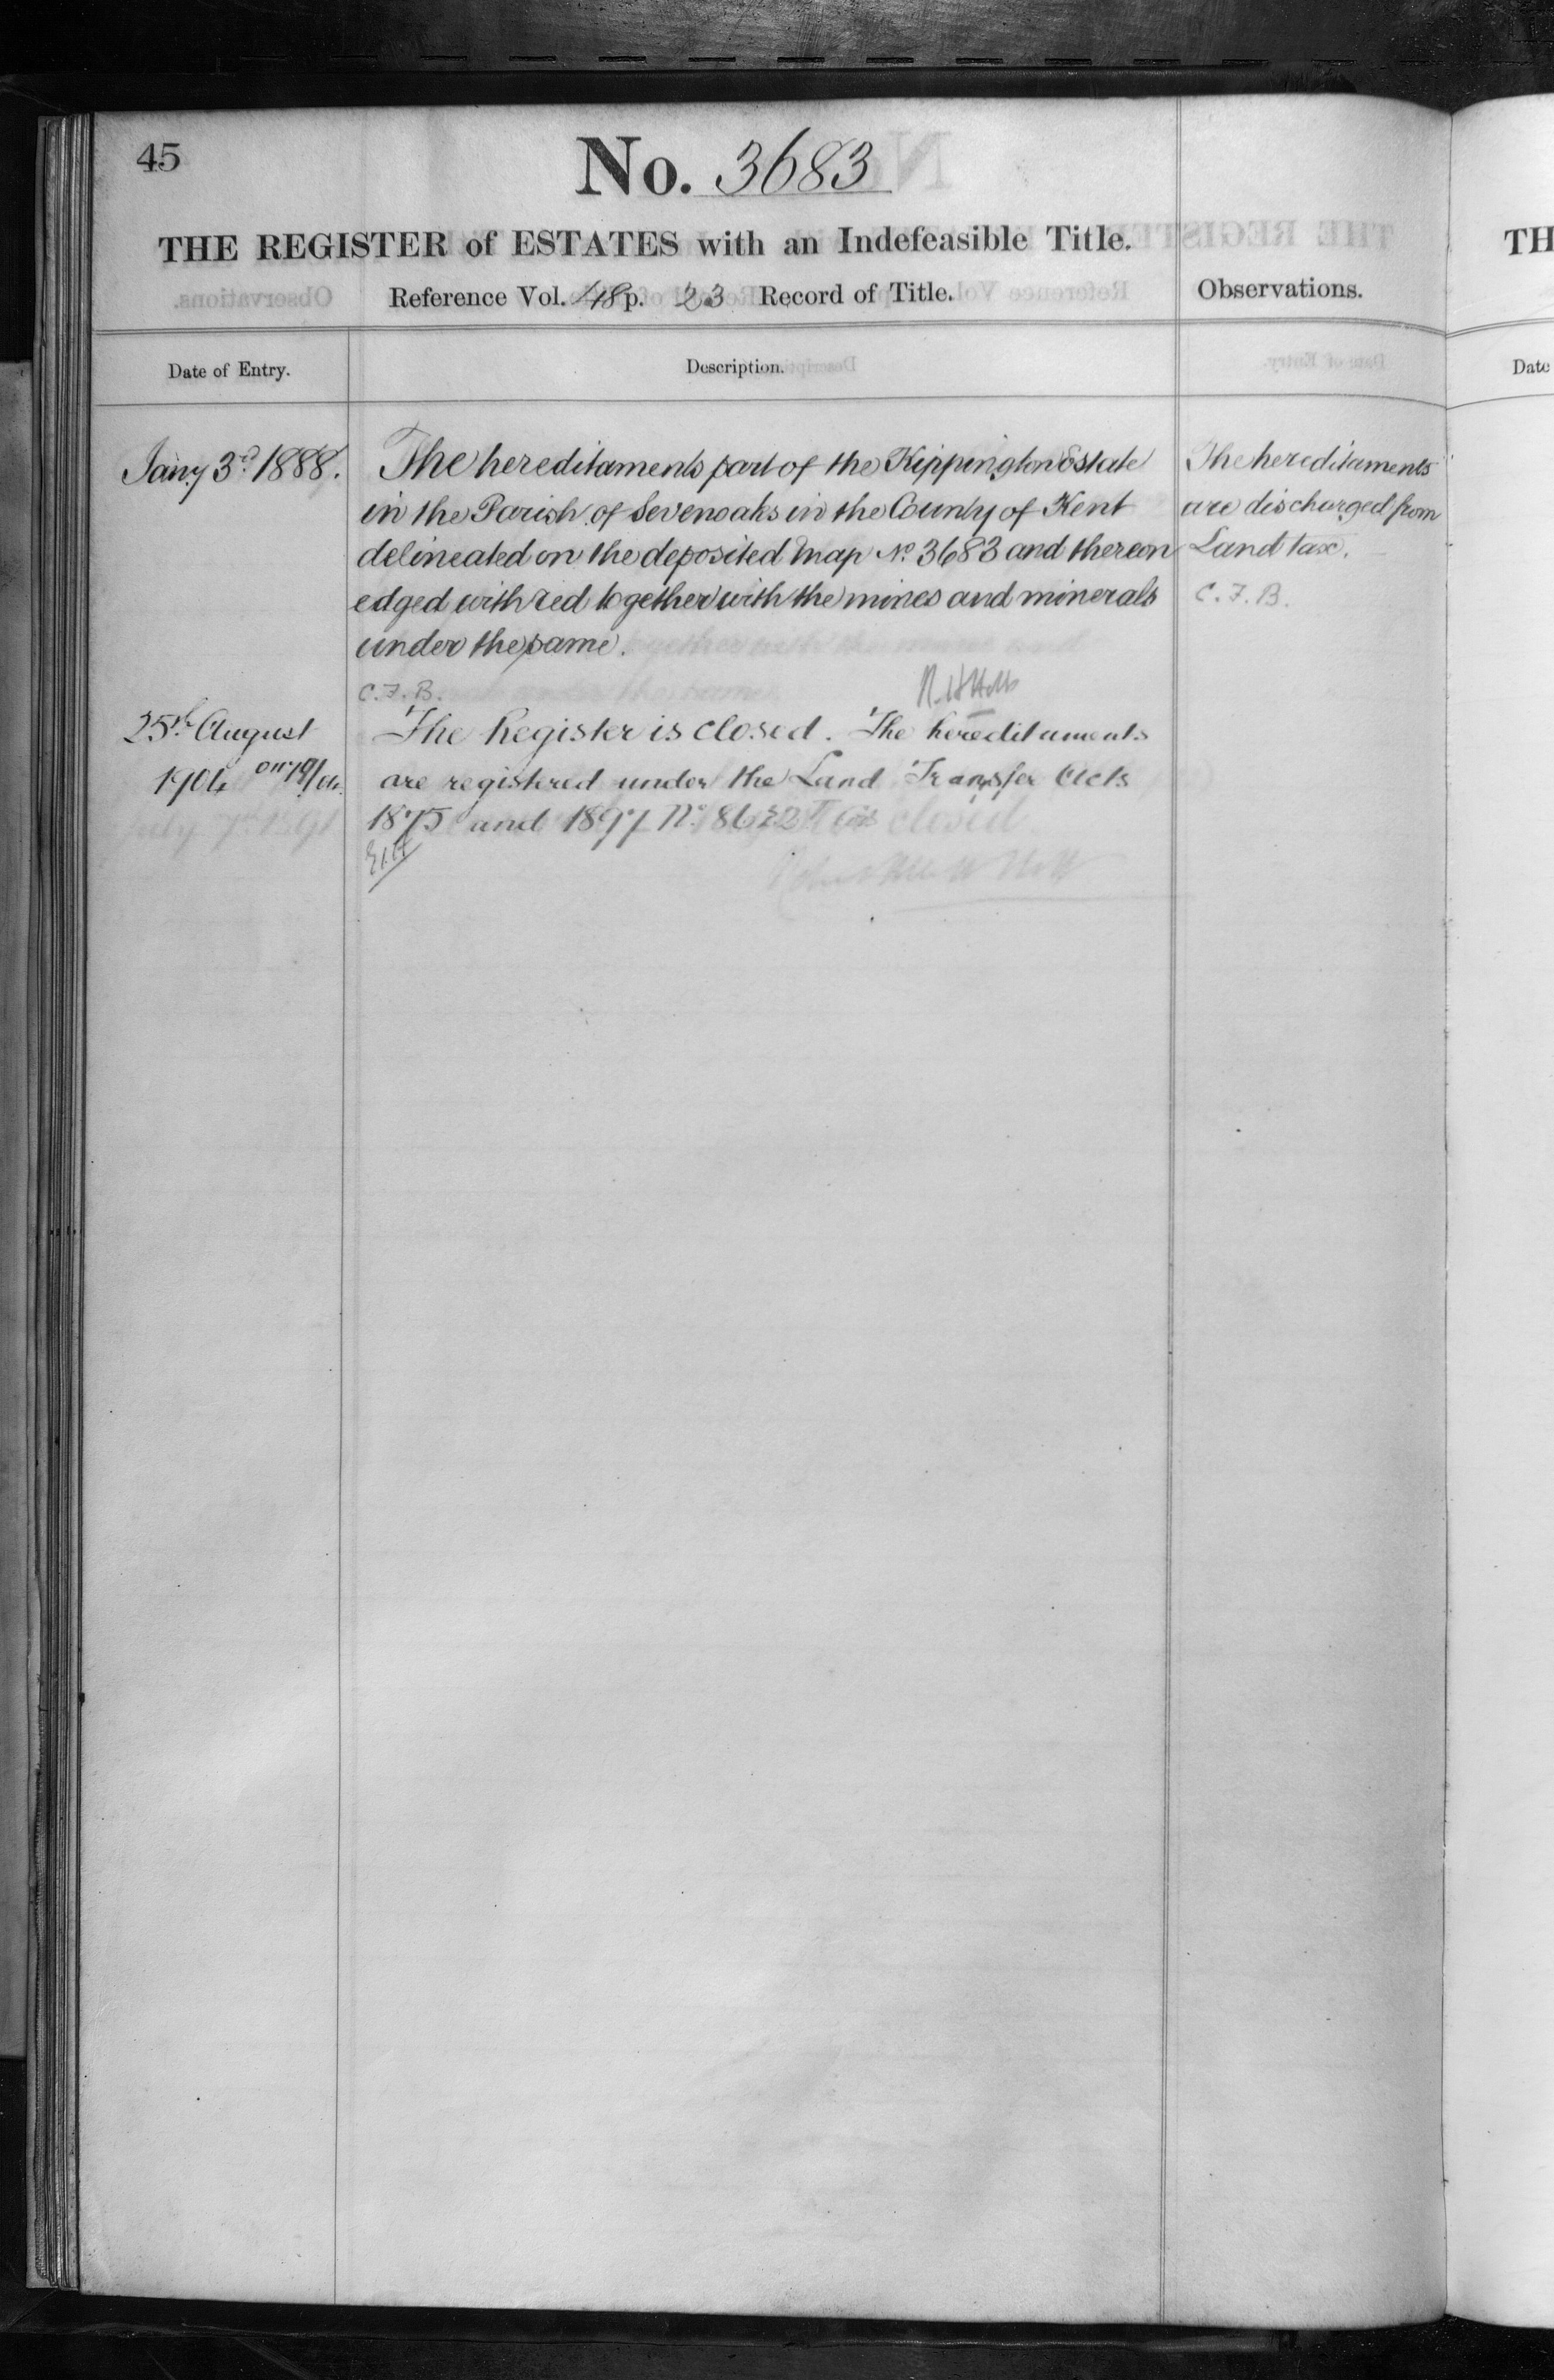 45
No. 3683
THE REGISTER of ESTATES with an Indefeasible Title.
Reference Vol. 48 p. 23 Record of Title.
Observations.
Date of Entry.
Description.
Jany 3d. 1888.
The hereditaments part of the Kippington Estate
in the Parish of Sevenoaks in the County of Kent
delineated on the deposited Map No. 3683 and thereon
edged with red together with the mines and minerals
under the same.
C.F.B.
The hereditaments
are discharged from
Land tax.
C.F.B.
25th August
1904
The Register is closed. The hereditaments
are registered under the Land Transfer Acts
1875 and 1897 No.
TH
Date